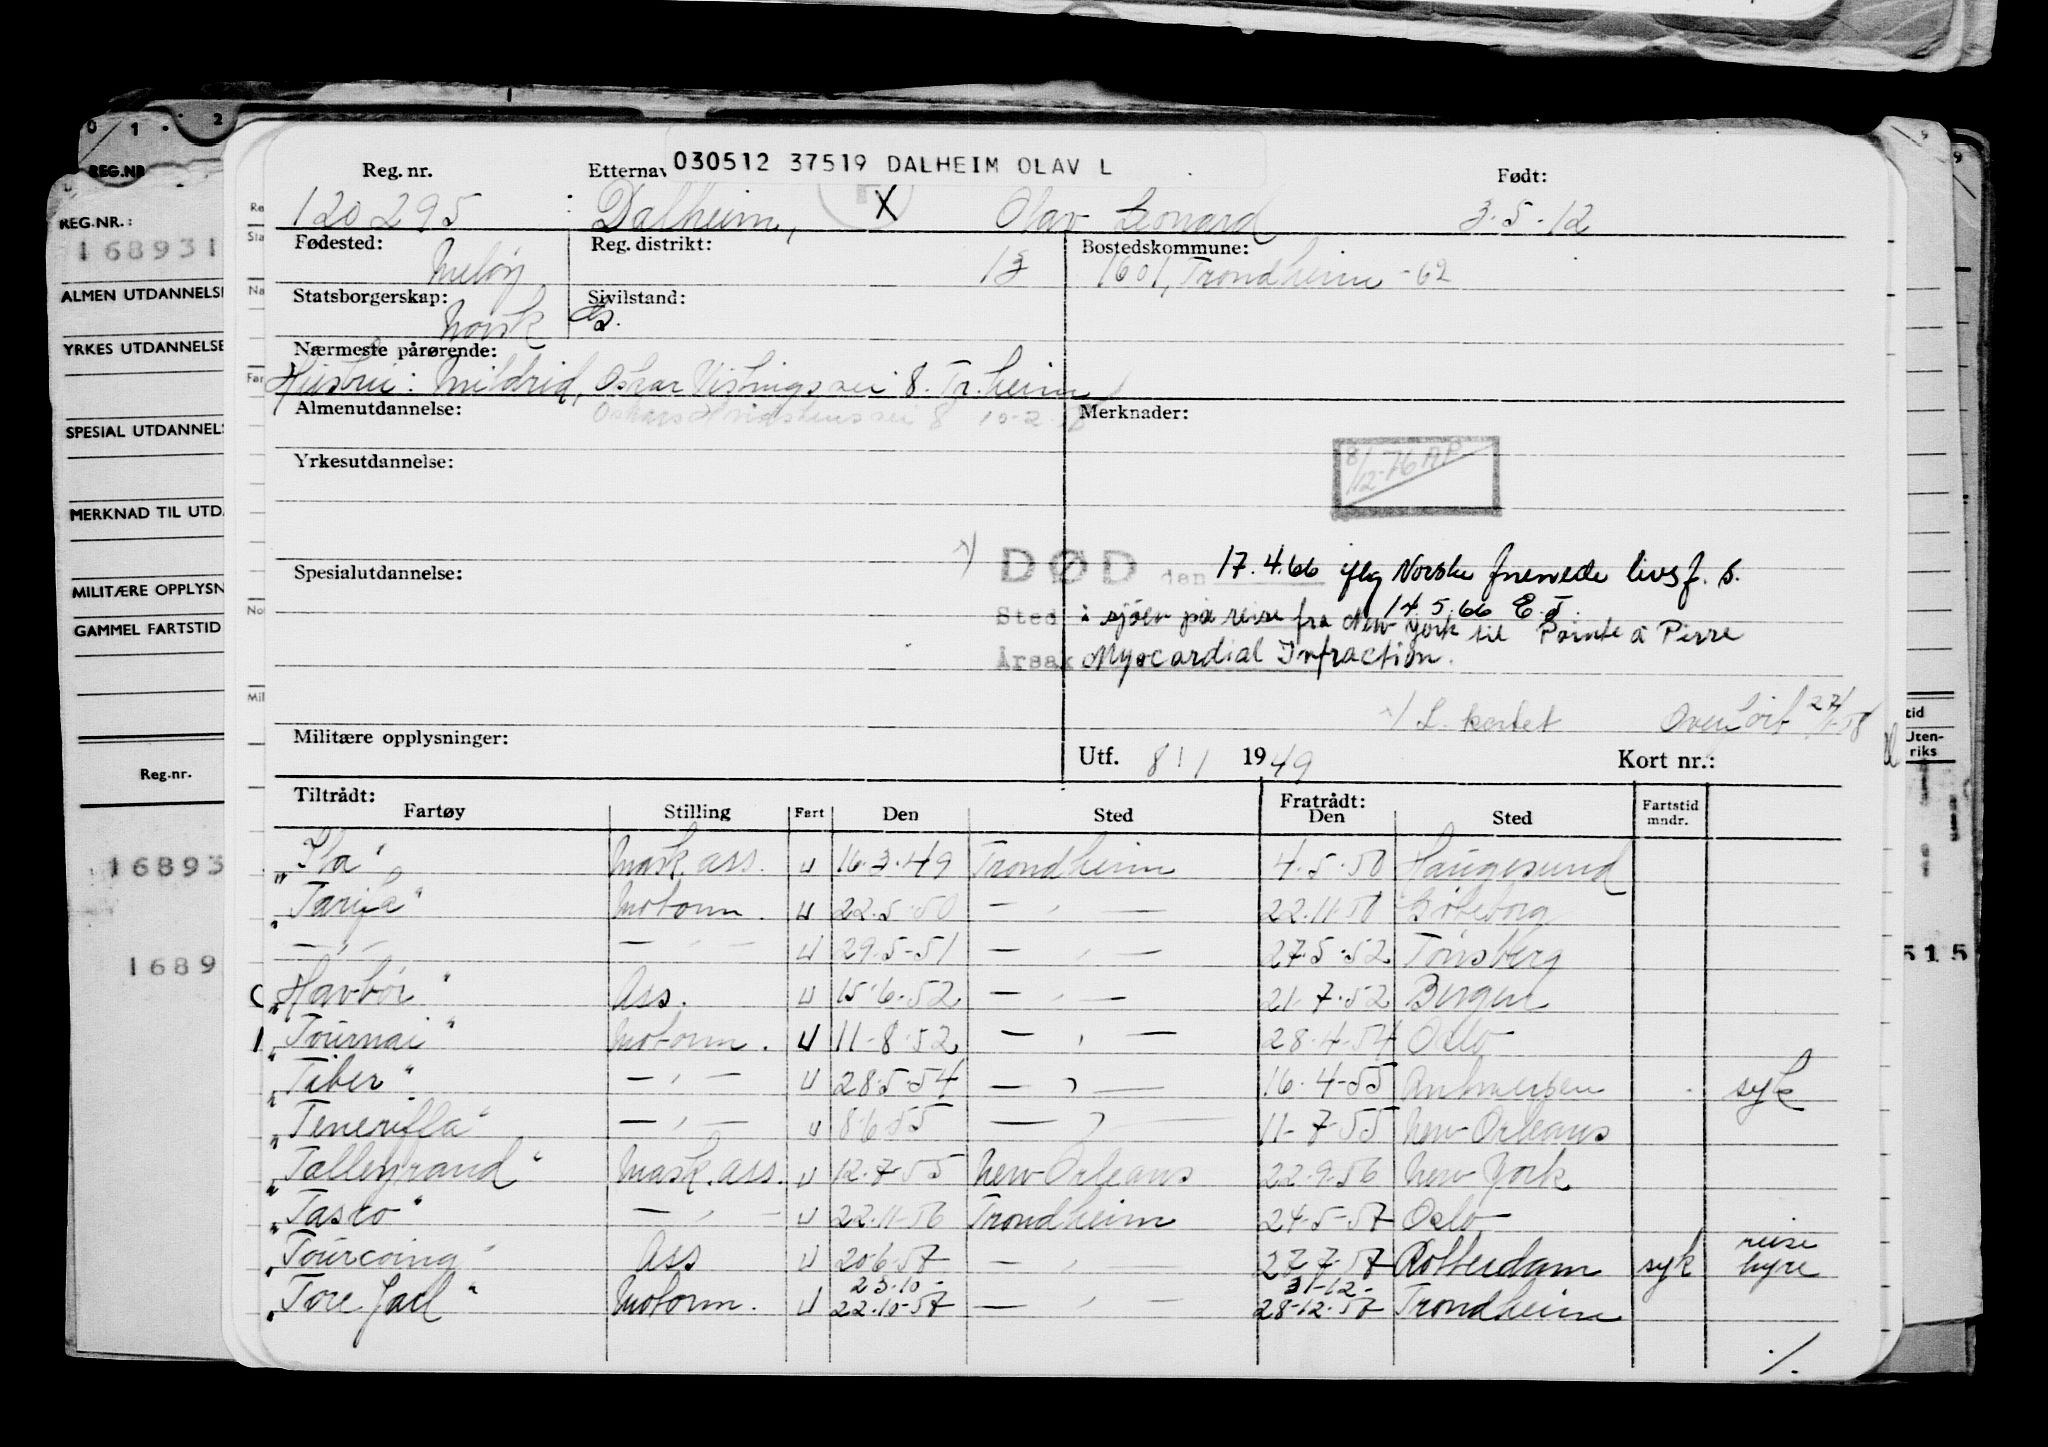 0 1 - 2
REG.NR
REG.NR.:
168931
ALMEN UTDANNELSE
YRKES UTDANNELSE
SPESIAL UTDANNELS
MERKNAD TIL UTDA
MILITÆRE OPPLYSN
GAMMEL FARTSTID
Reg.nr.
16893
1689
030512 37519 DALHEIM OLAV L
Reg. nr. Etternav Født:
120295 Dalheim, X Olav Leonard 3-5-12
Fødested: Meløy Reg. distrikt: 13 Bostedskommune: 1601, Trondheim -62
Statsborgerskap: Norsk Sivilstand: G.
Nærmeste pårørende:
Hustru: Mildrid, Oskar Vistingsvei 8. Tr.heim
Almenutdannelse: 8 10-2-58 Merknader:
8/12-76 AP
Yrkesutdannelse:
Spesialutdannelse:
x) DØD den 17.4.66 iflg Norske forenede livsf. s.
14.5.66 E.J.
Sted i sjøen på reise fra New York til Pointe à Pierre
Årsak Myocardial Infraction.
x) L. kortet Overført 27/1-58
Militære opplysninger: Utf. 8/1 1949 Kort nr.:
Tiltrådt: Fratrådt:
Fartøy Stilling Fart Den Sted Den Sted Fartstid mndr.
"Ila" Mask.ass. U 16-3-49 Trondheim 4-5-50 Haugesund
"Tarifa" Motorm. U 22-5-50 — " — 22-11-50 Gøteborg
— " — — " — U 29-5-51 — " — 27-5-52 Tønsberg
"Havbør" Ass. U 15-6-52 — " — 21-7-52 Bergen
"Tournai" Motorm. U 11-8-52 — " — 28-4-54 Oslo
"Tiber" — " — U 28-5-54 — " — 16-4-55 Antwerpen syk
"Teneriffa" — " — U 8-6-55 — " — 11-7-55 New Orleans
"Talleyrand" Mask.ass. U 12-7-55 New Orleans 22-9-56 New York
"Tasco" — " — U 22-11-56 Trondheim 24-5-57 Oslo
"Tourcoing" Ass U 20-6-57 — " — 27-7-57 Rotterdam syk reise hyre
23-10- 31-12-
"Tore Jarl" Motorm. U 22-10-57 — " — 28-12-57 Trondheim
%
tid
Uten-
riks
515